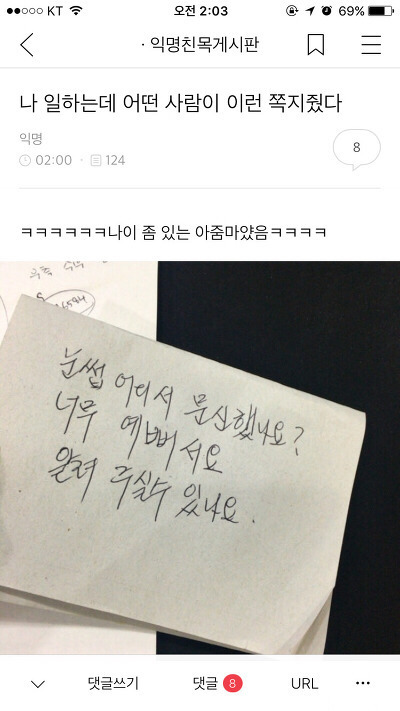 KT 오전 2:03 69%
· 익명친목게시판
나 일하는데 어떤 사람이 이런 쪽지줬다
익명
8
02:00 · 124
ㅋㅋㅋㅋㅋㅋ나이 좀 있는 아줌마얐음ㅋㅋㅋㅋ
눈썹 어디서 문신했나요?
너무 예뻐서요
알려 주실수 있나요.
댓글쓰기 댓글 8 URL